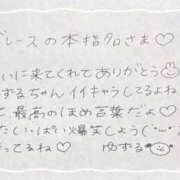 レースの本指名さま♡
いに来てくれてありがとう
ずるちゃんイイキャラしてるよね
て、最高のほめ言葉だよ♡
たくいっぱい爆笑しよう(˙꒳˙)
ってるね♡ ゆずる